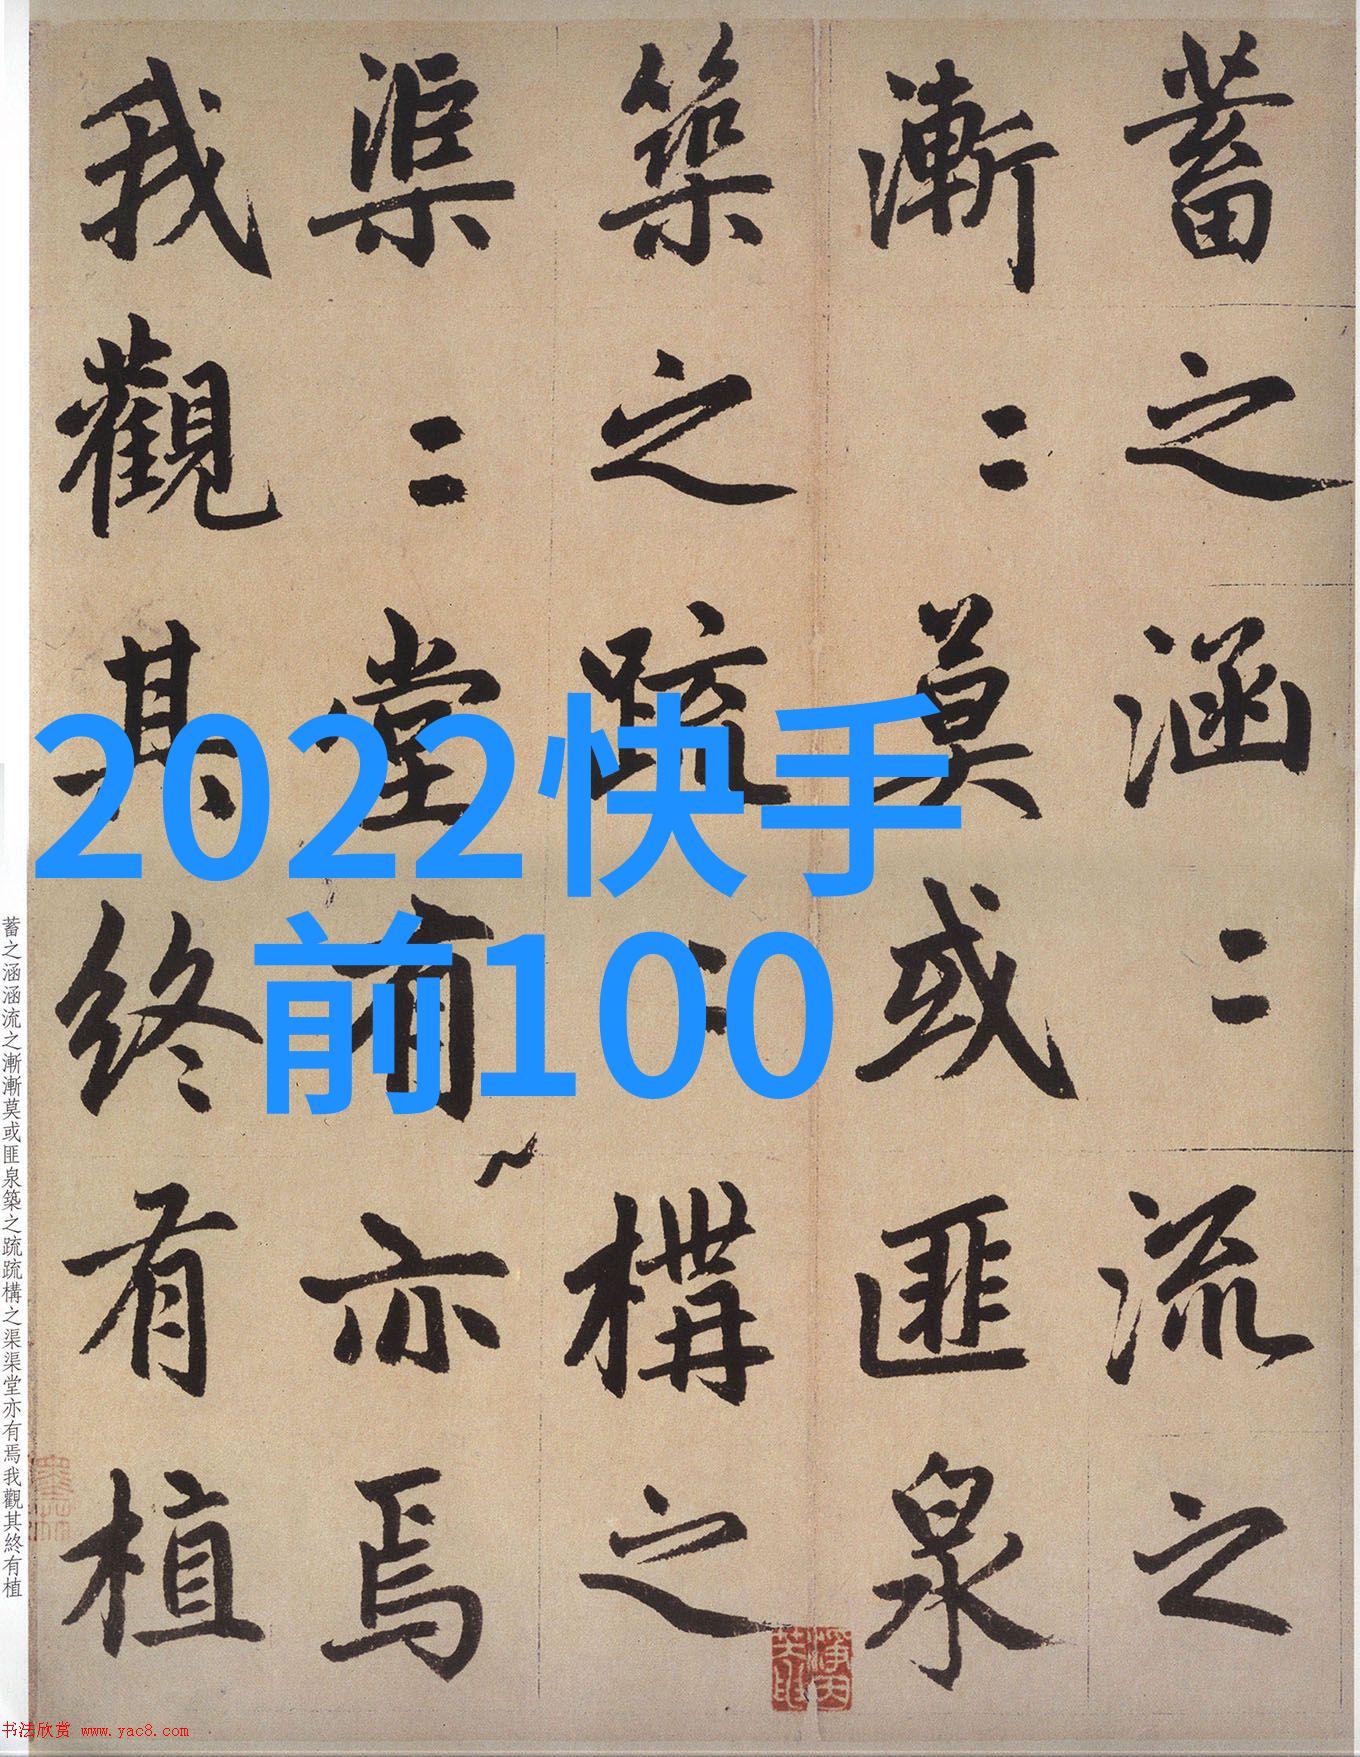 蓄之涵二流之
漸二莫或匪泉
築之疏二構之
渠二堂有亦焉
我觀其終有植
2022快手
前100
蓄之涵涵流之漸漸莫或匪泉築之疏疏構之渠渠堂亦有焉我觀其終有植
书法欣赏 www.yac8.com